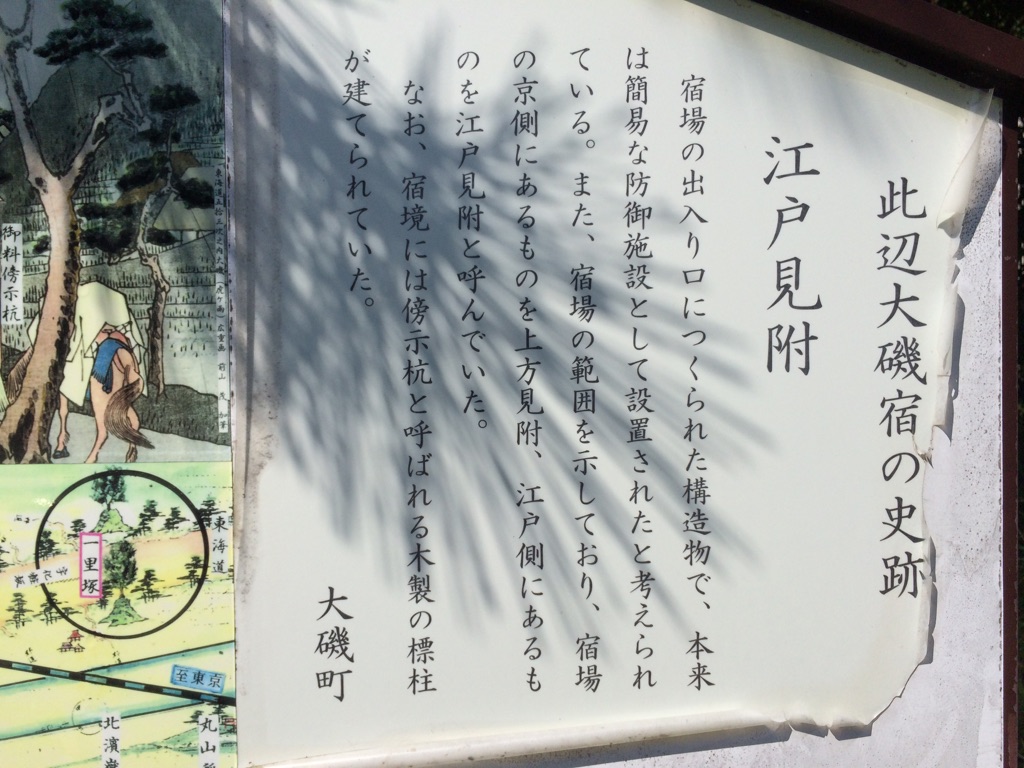 此辺大磯宿の史跡
江戸見附
宿場の出入り口につくられた構造物で、本来
は簡易な防御施設として設置されたと考えられ
ている。また、宿場の範囲を示しており、宿場
の京側にあるものを上方見附、江戸側にあるも
のを江戸見附と呼んでいた。
なお、宿境には傍示杭と呼ばれる木製の標柱
が建てられていた。
大磯町
御料傍示杭
東海道
一里塚
至東京
丸山
北濱